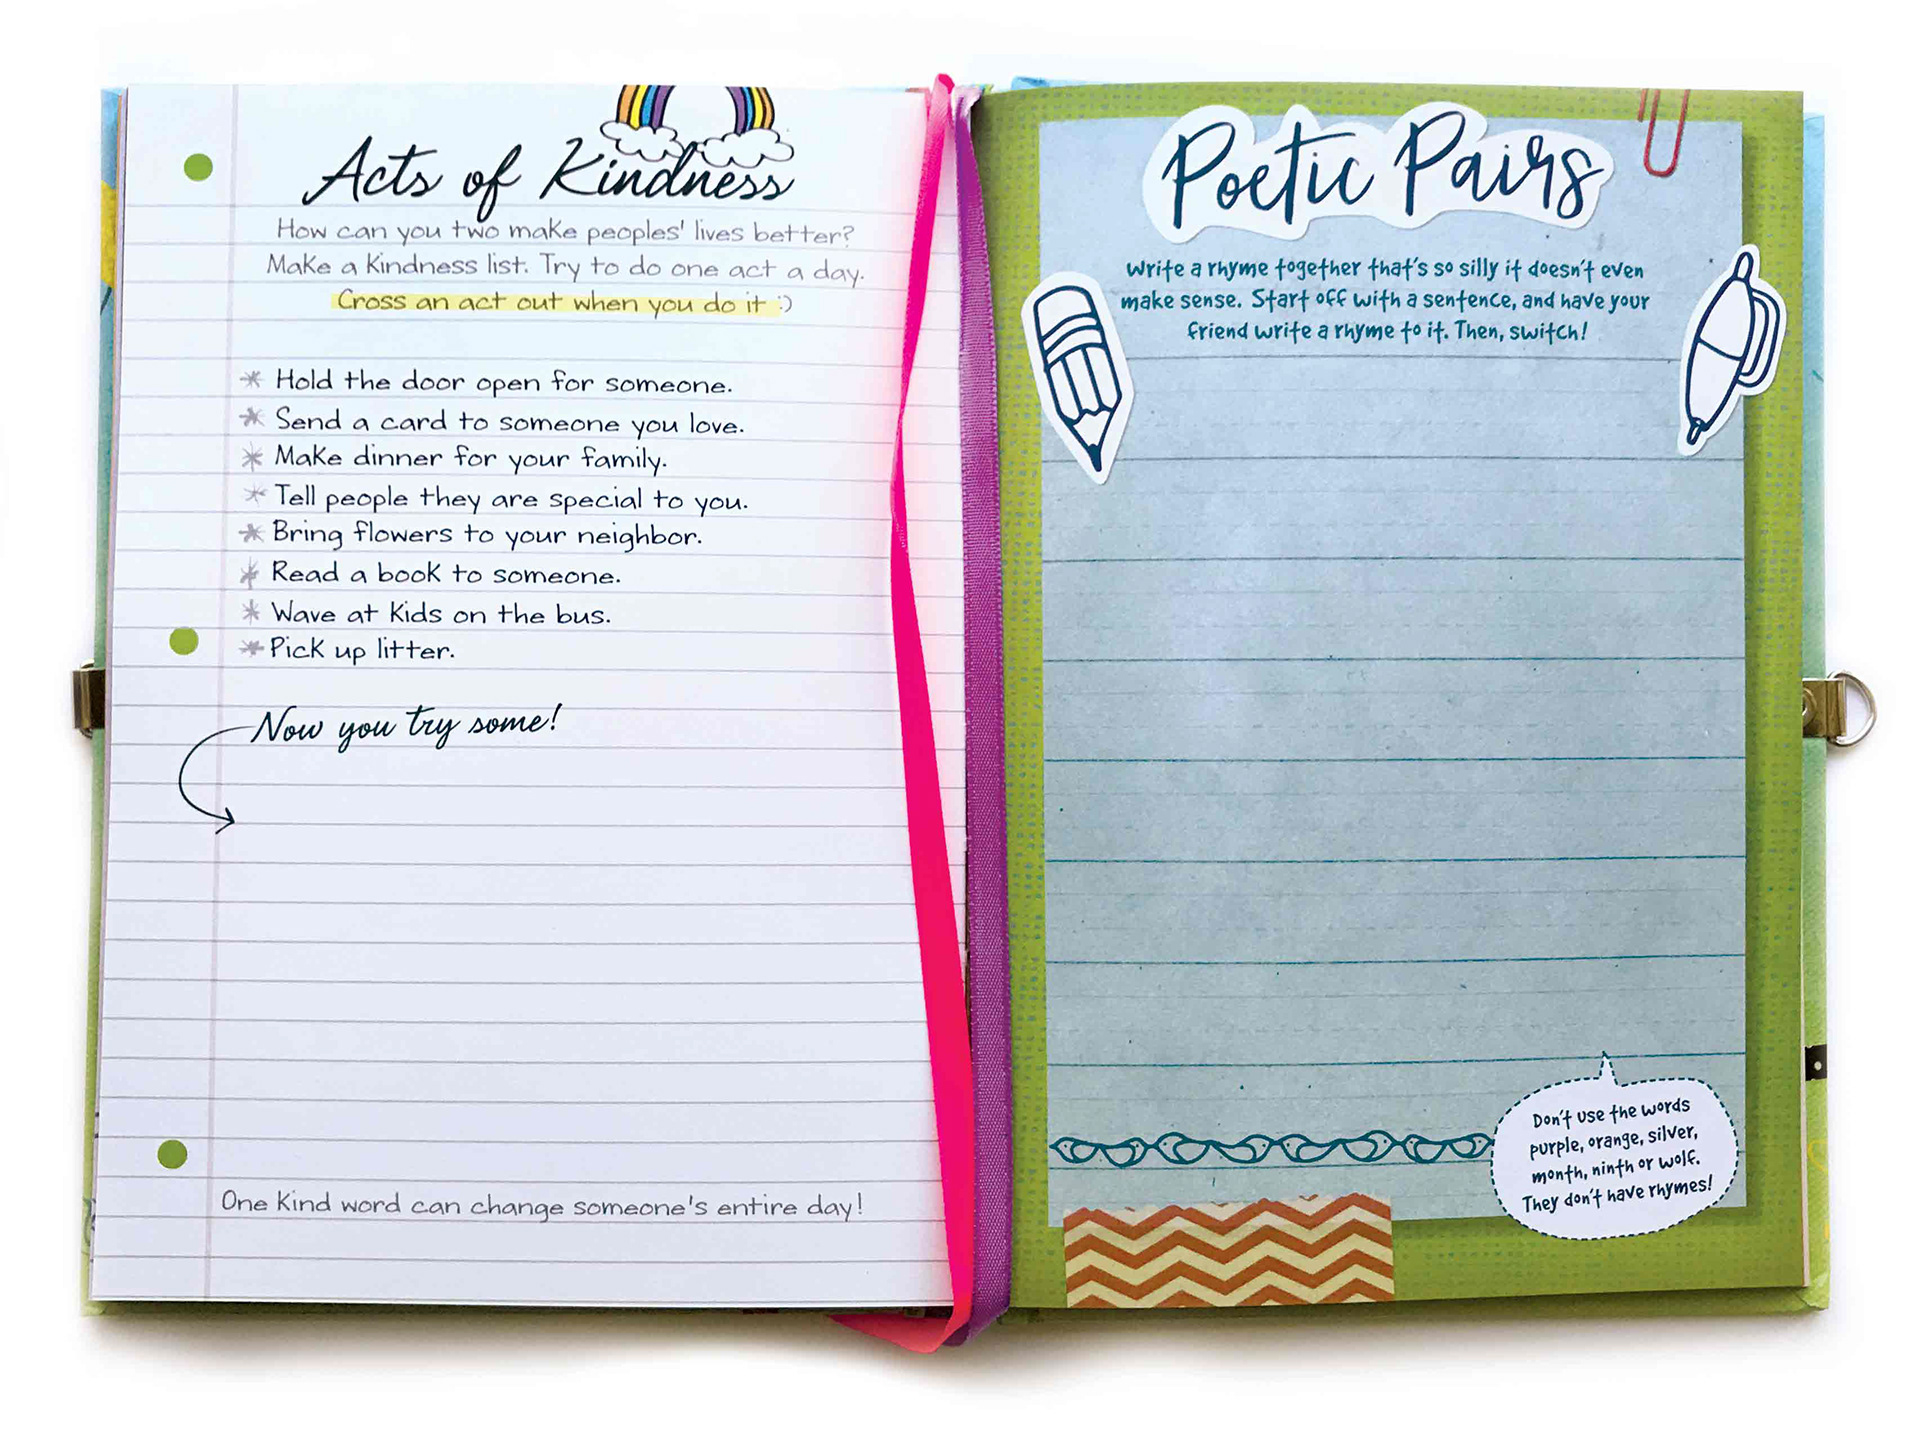 Acts of Kindness
How can you two make peoples' lives better?
Make a Kindness list. Try to do one act a day.
Cross an act out when you do it :)
* Hold the door open for someone.
* Send a card to someone you love.
* Make dinner for your family.
* Tell people they are special to you.
* Bring flowers to your neighbor.
* Read a book to someone.
* Wave at Kids on the bus.
* Pick up litter.
Now you try some!
One Kind word can change someone's entire day!
Poetic Pairs
Write a rhyme together that's so silly it doesn't even
make sense. Start off with a sentence, and have your
friend write a rhyme to it. Then, switch!
Don't use the words
purple, orange, silver,
month, ninth or wolf.
They don't have rhymes!